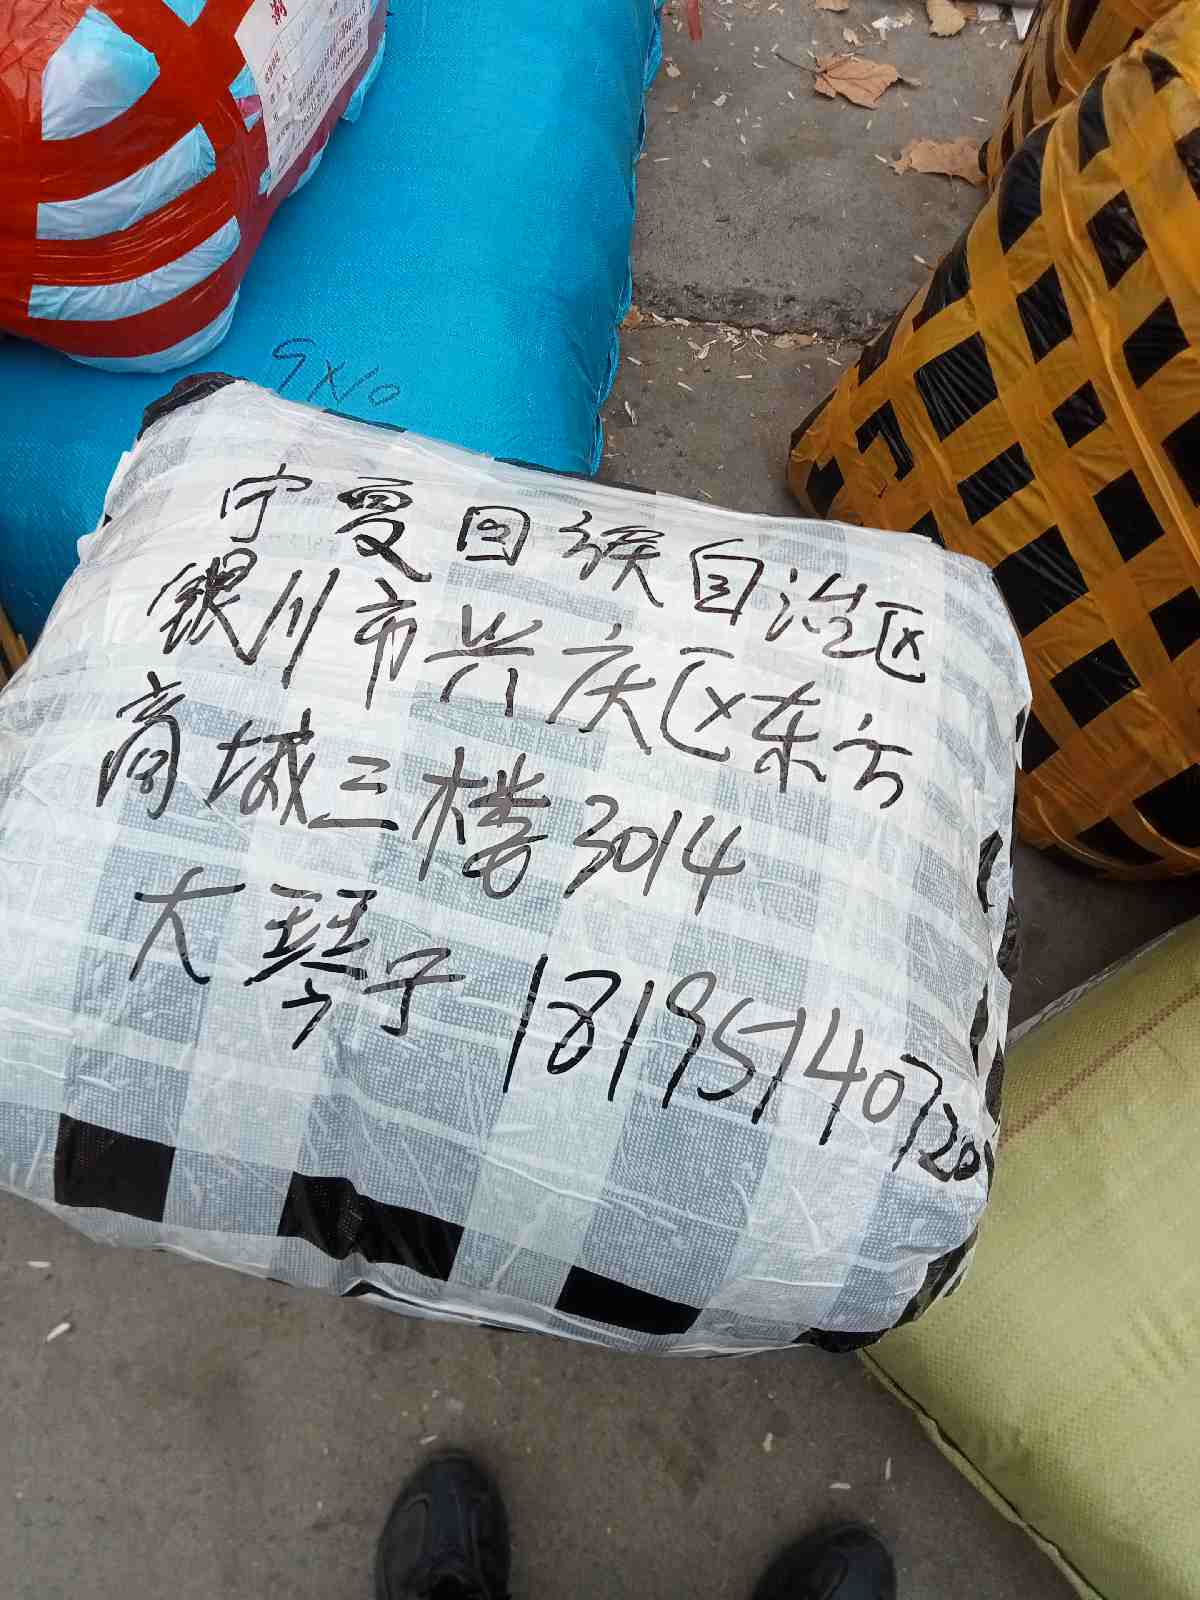 宁夏回族自治区
银川市兴庆区东方
商城三楼3014
大琴子 18195140720